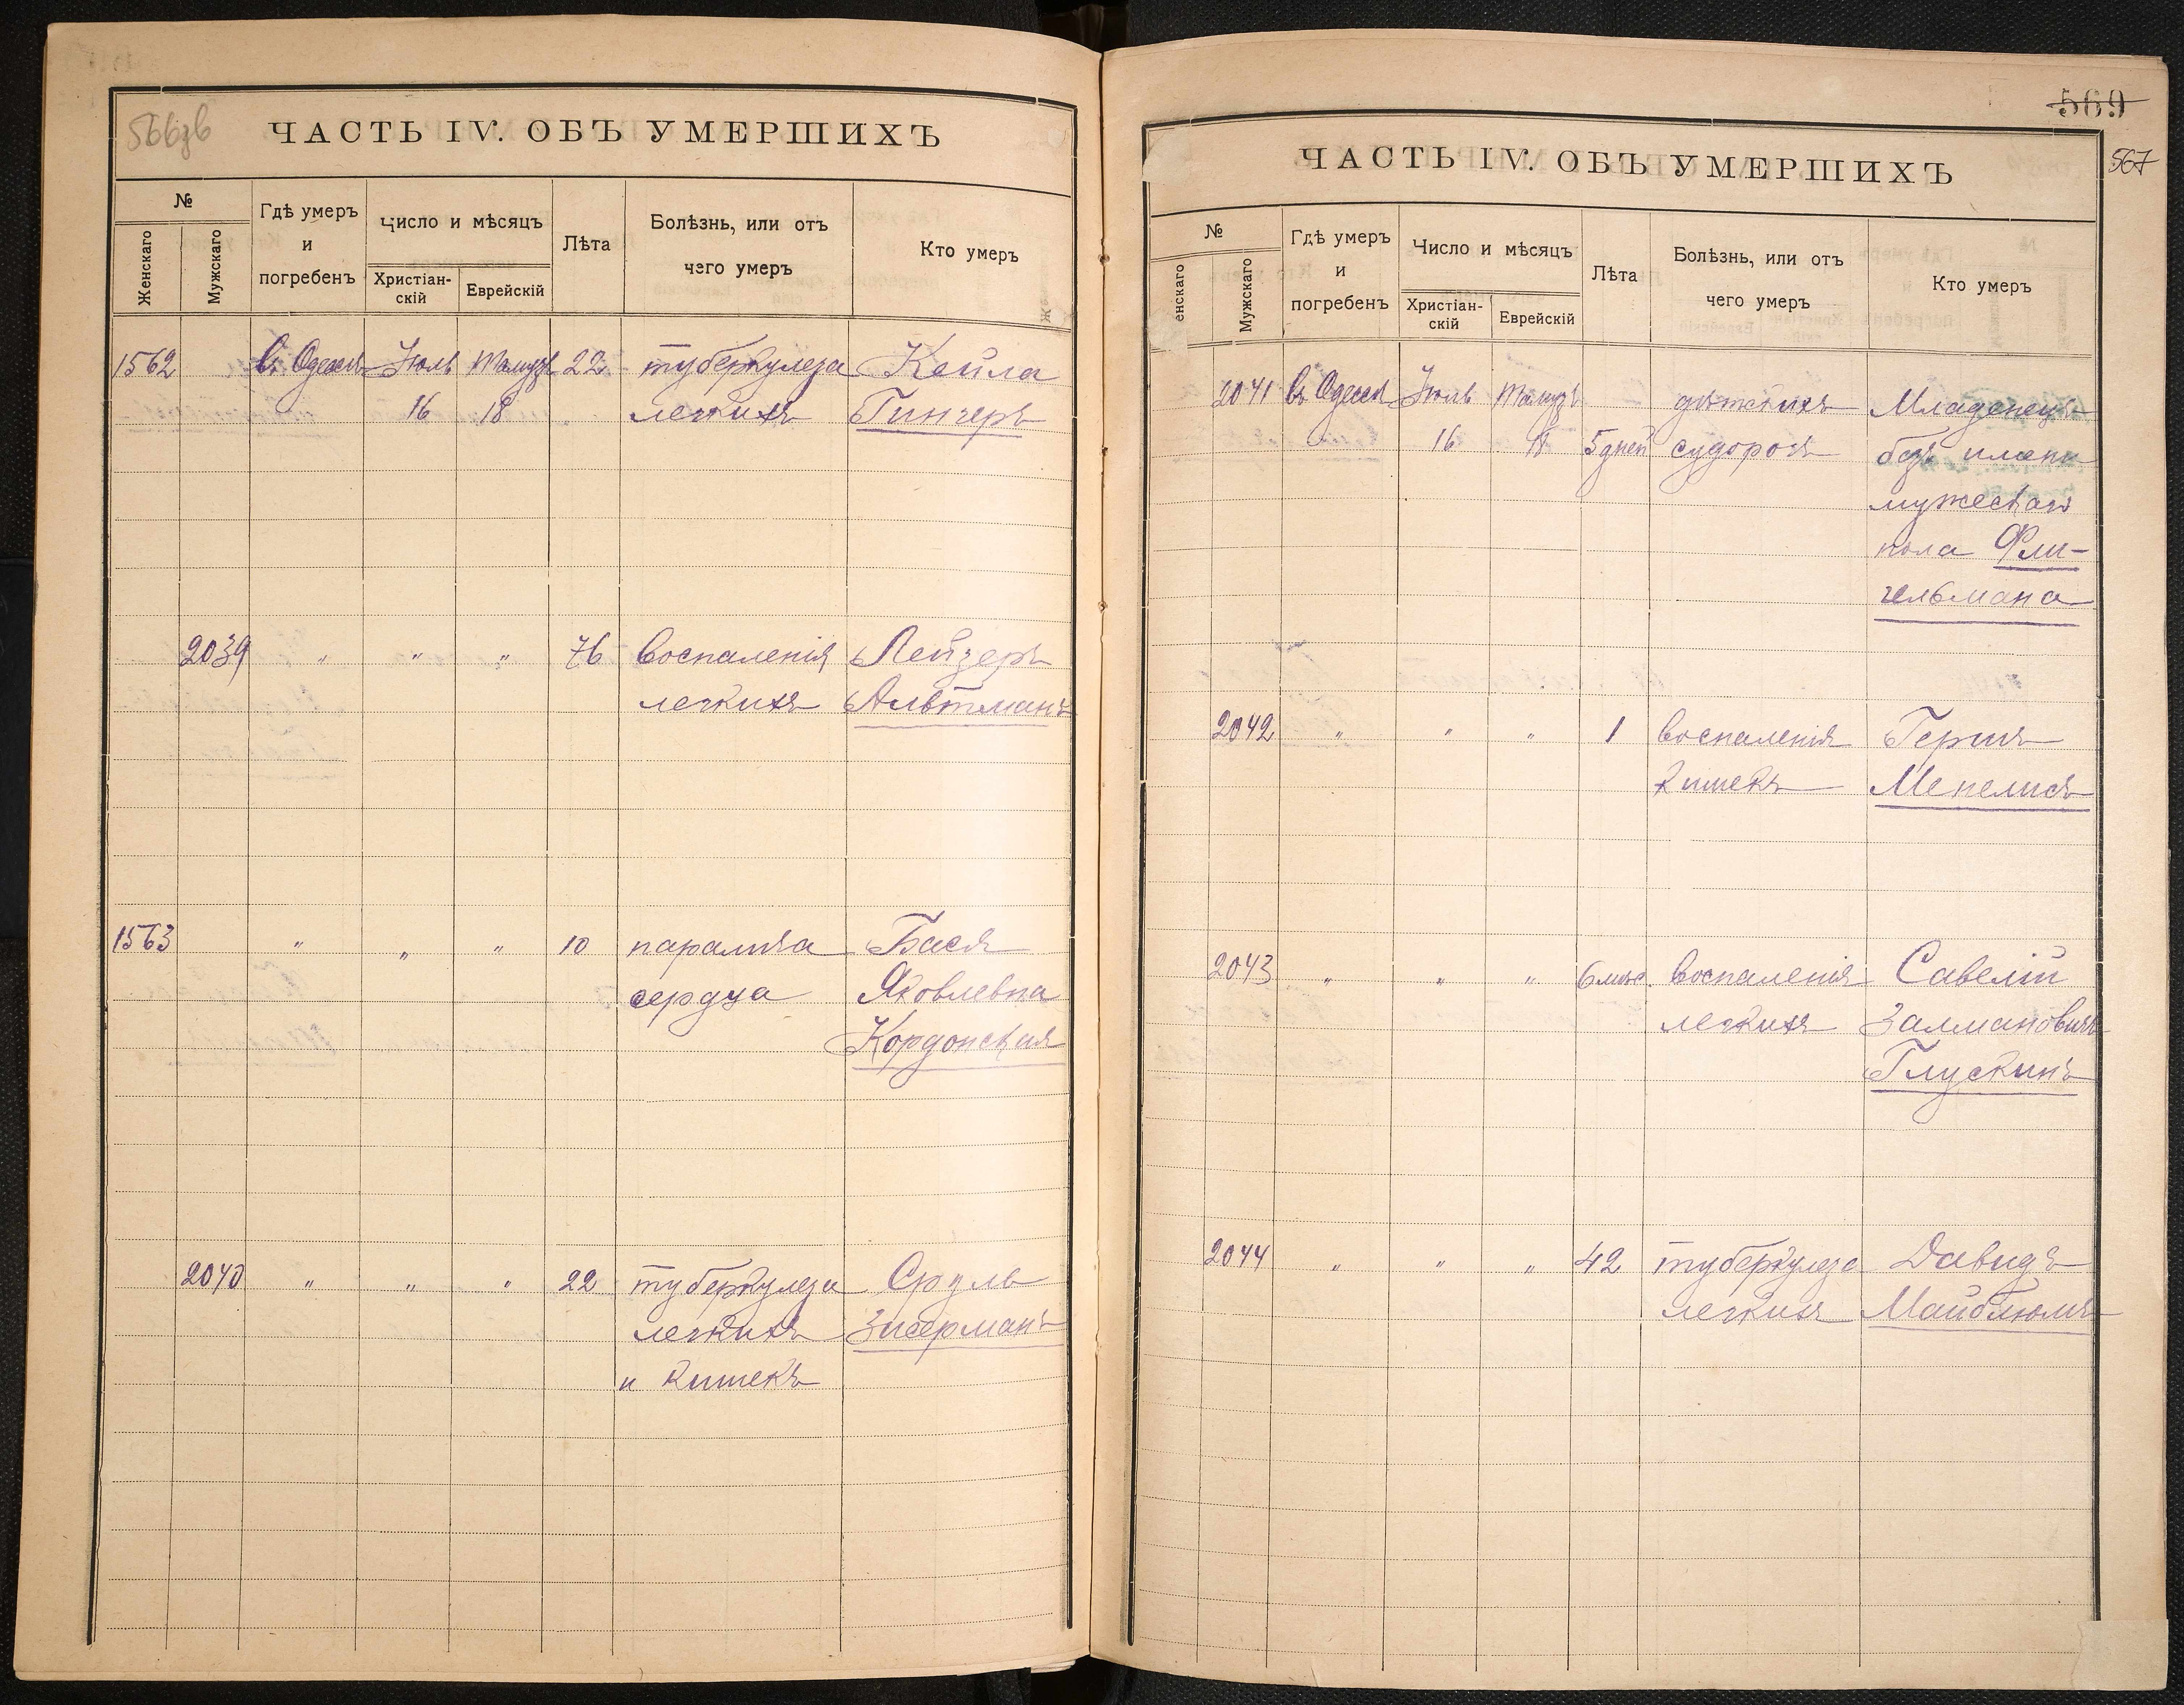 566зв
ЧАСТЬ IV. ОБЪ УМЕРШИХЪ
№
Женскаго
Мужскаго
Гдѣ умеръ
и
погребенъ
Число и мѣсяцъ
Христіан-
скій
Еврейскій
Лѣта
Болѣзнь, или отъ
чего умеръ
Кто умеръ
1562 въ Одессѣ Іюль Тамузъ 22 туберкулеза Кейла
16 18 легкихъ Гингеръ
2039 " " " 76 воспаленія Лейзеръ
легкихъ Альтманъ
1563 " " " 10 паралича Бася
сердца Яковлевна
Кордонская
2040 " " " 22 туберкулеза Сруль
легкихъ Зисерманъ
и кишекъ
569
567
ЧАСТЬ IV. ОБЪ УМЕРШИХЪ
№
енскаго
Мужскаго
Гдѣ умеръ
и
погребенъ
Число и мѣсяцъ
Христіан-
скій
Еврейскій
Лѣта
Болѣзнь, или отъ
чего умеръ
Кто умеръ
2041 въ Одессѣ Іюль Тамузъ дѣтскихъ Младенецъ
16 18 5 дней судорогъ безъ имени
мужескаго
пола Фли-
гельмана
2042 " " " 1 воспаленія Гершъ
кишекъ Менелисъ
2043 " " " 6 мѣс. воспаленія Савелій
легкихъ Залмановичъ
Глускинъ
2044 " " " 42 туберкулеза Давидъ
легкихъ Майблюмъ